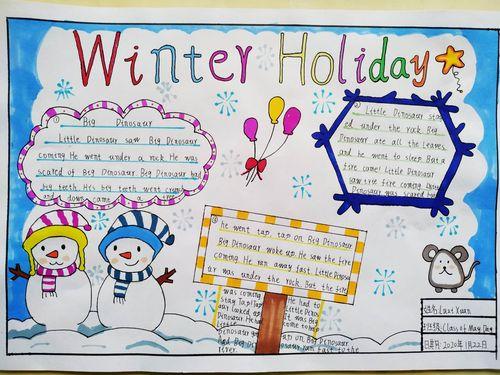 Winter Holiday
① Big Dinosaur
Little Dinosaur saw Big Dinosaur
coming. He went under a rock. He was
scared of Big Dinosaur. Big Dinosaur had
big teeth. His big teeth went crunch
and down came a tree.
② Little Dinosaur stay
ed under the rock. Big
Dinosaur ate all the leaves
and he went to sleep. But a
fire came! Little Dinosaur
saw fire coming.
Dinosaur was scared but
③ he went tap, tap on Big Dinosaur.
Big Dinosaur woke up. He saw the fire
coming. He ran away fast. Little Dinosa
ur was under the rock. But the fire
was coming
He had to
stay
Little
Dinosa
He
It was
Little
come to help
Dinosaur
tap on Big Dinosaur
had Big Dinosaur
ran fast to the
river.
姓名: Xuan
班级: Class of May Day
日期: 2020年1月22日